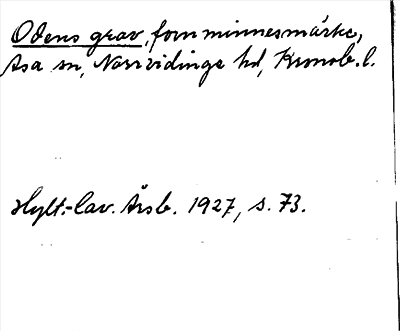 Odens grav, fornminnesmärke,
Asa sn, Norrvidinge hd, Kronob. l.
Hylt.-Cav. Årsb. 1927, s. 73.